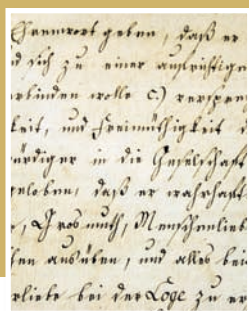 Ehrenwort geben, daß er
d sich zu einer aufrichtigen
rbinden wolle c.) versprec
keit, und Freimüthigkeit
ürdiger in die Gesellschaft
geloben, daß er wahrhaft
, Grosmuth, Menschenlieb
en ausüben, und alles bei
rliebe bei der Loge zu er